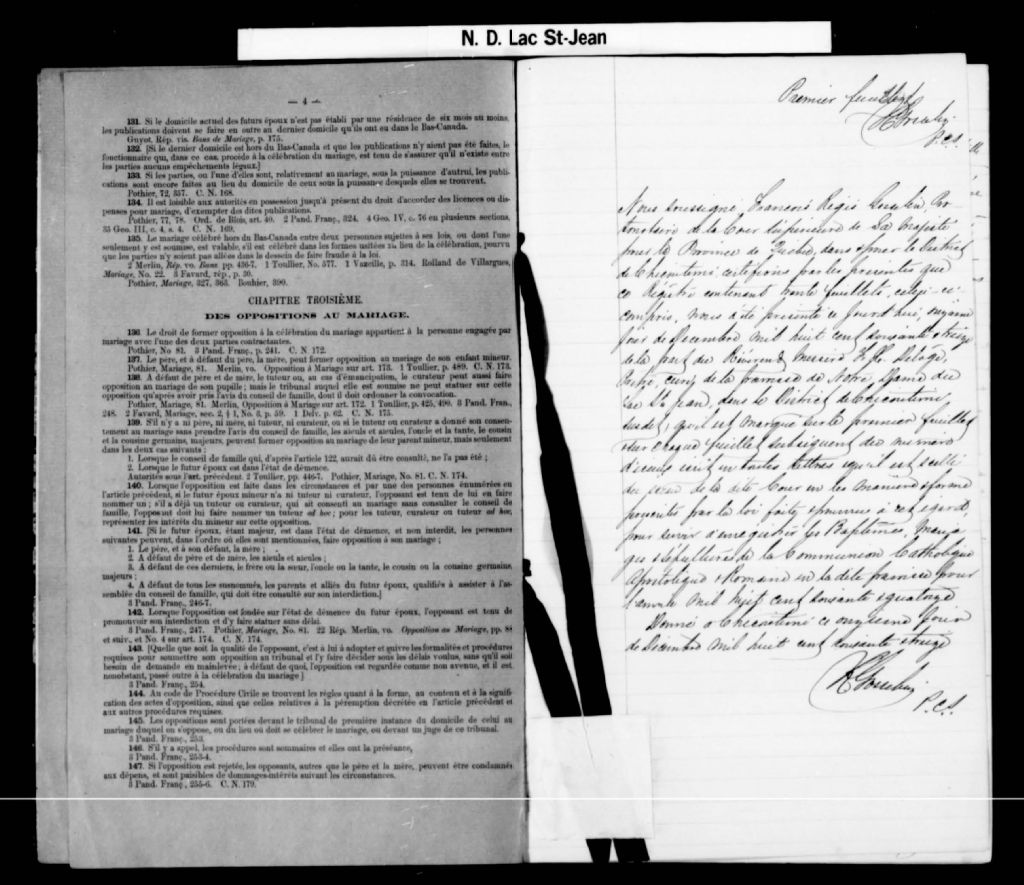 N. D. Lac St-Jean
— 4 —
131. Si le domicile actuel des futurs époux n'est pas établi par une résidence de six mois au moins,
les publications doivent se faire en outre au dernier domicile qu'ils ont eu dans le Bas-Canada.
Guyot. Rép. vis. Bans de Mariage, p. 175.
132. [Si le dernier domicile est hors du Bas-Canada et que les publications n'y aient pas été faites, le
fonctionnaire qui, dans ce cas, procède à la célébration du mariage, est tenu de s'assurer qu'il n'existe entre
les parties aucuns empêchements légaux.]
133. Si les parties, ou l'une d'elles sont, relativement au mariage, sous la puissance d'autrui, les publi-
cations sont encore faites au lieu du domicile de ceux sous la puissance desquels elles se trouvent.
Pothier, 72, 357. C. N. 168.
134. Il est loisible aux autorités en possession jusqu'à présent du droit d'accorder des licences ou dis-
penses pour mariage, d'exempter des dites publications.
Pothier, 77, 78. Ord. de Blois, art. 40. 2 Pand. Franç., 324. 4 Geo. IV, c. 76 en plusieurs sections,
35 Geo. III, c. 4, s. 4. C. N. 169.
135. Le mariage célébré hors du Bas-Canada entre deux personnes sujettes à ses lois, ou dont l'une
seulement y est soumise, est valable, s'il est célébré dans les formes usitées au lieu de la célébration, pourvu
que les parties n'y soient pas allées dans le dessein de faire fraude à la loi.
2 Merlin, Rép. vo. Bans pp. 436-7. 1 Toullier, No. 577. 1 Vazeille, p. 314. Rolland de Villargues,
Mariage, No. 22. 3 Favard, rép., p. 30.
Pothier, Mariage, 327, 363. Bouhier, 390.
CHAPITRE TROISIÈME.
DES OPPOSITIONS AU MARIAGE.
136. Le droit de former opposition à la célébration du mariage appartient à la personne engagée par
mariage avec l'une des deux parties contractantes.
Pothier, No 81. 3 Pand. Franç., p. 241. C. N 172.
137. Le père, et à défaut du père, la mère, peut former opposition au mariage de son enfant mineur.
Pothier, Mariage, 81. Merlin, vo. Opposition à Mariage sur art. 173. 1 Toullier, p. 489. C. N. 173.
138. A défaut de père et de mère, le tuteur ou, au cas d'émancipation, le curateur peut aussi faire
opposition au mariage de son pupille; mais le tribunal auquel elle est soumise ne peut statuer sur cette
opposition qu'après avoir pris l'avis du conseil de famille, dont il doit ordonner la convocation.
Pothier, Mariage, 81. Merlin, Opposition à Mariage sur art. 172. 1 Toullier, p. 425, 490. 3 Pand. Fran.,
248. 2 Favard, Mariage, sec. 2, § 1, No. 3, p. 59. 1 Delv. p. 62. C. N. 175.
139. S'il n'y a ni père, ni mère, ni tuteur, ni curateur, ou si le tuteur ou curateur a donné son consen-
tement au mariage sans prendre l'avis du conseil de famille, les aïeuls et aïeules, l'oncle et la tante, le cousin
et la cousine germains, majeurs, peuvent former opposition au mariage de leur parent mineur, mais seulement
dans les deux cas suivants:
1. Lorsque le conseil de famille qui, d'après l'article 122, aurait dû être consulté, ne l'a pas été;
2. Lorsque le futur époux est dans l'état de démence.
Autorités sous l'art. précédent. 2 Toullier, pp. 446-7. Pothier, Mariage, No. 81. C. N. 174.
140. Lorsque opposition est faite dans les circonstances et par une des personnes énumérées en
l'article précédent, si le futur époux mineur n'a ni tuteur ni curateur, l'opposant est tenu de lui en faire
nommer un; s'il a déjà un tuteur ou curateur, qui ait consenti au mariage sans consulter le conseil de
famille, l'opposant doit lui faire nommer un tuteur ad hoc; pour les tuteur, curateur ou tuteur ad hoc,
représenter les intérêts du mineur sur cette opposition.
141. [Si le futur époux, étant majeur, est dans l'état de démence, et non interdit, les personnes
suivantes peuvent, dans l'ordre où elles sont mentionnées, faire opposition à son mariage;
1. Le père, et à son défaut, la mère;
2. A défaut de père et de mère, les aïeuls et aïeules;
3. A défaut de ces derniers, le frère ou la sœur, l'oncle ou la tante, le cousin ou la cousine germains,
majeurs;
4. A défaut de tous les susnommés, les parents et alliés du futur époux, qualifiés à assister à l'as-
semblée du conseil de famille, qui doit être consultée sur son interdiction.]
3 Pand. Franç., 246-7.
142. Lorsque l'opposition est fondée sur l'état de démence du futur époux, l'opposant est tenu de
promouvoir son interdiction et d'y faire statuer sans délai.
3 Pand. Franç., 247. Pothier, Mariage, No. 81. 22 Rép. Merlin, vo. Opposition au Mariage, pp. 88
et suiv., et No. 4 sur art. 174. C. N. 174.
143. [Quelle que soit la qualité de l'opposant, c'est à lui à adopter et suivre les formalités et procédures
requises pour soumettre son opposition au tribunal et l'y faire décider sous les délais voulus, sans qu'il soit
besoin de demande en mainlevée; à défaut de quoi, l'opposition est regardée comme non avenue, et il est,
nonobstant, passé outre à la célébration du mariage.]
3 Pand. Franç., 254.
144. Au code de Procédure Civile se trouvent les règles quant à la forme, au contenu et à la signifi-
cation des actes d'opposition, ainsi que celles relatives à la péremption décrétée en l'article précédent et
aux autres procédures requises.
145. Les oppositions sont portées devant le tribunal de première instance du domicile de celui au
mariage duquel on s'oppose, ou du lieu où doit se célébrer le mariage, ou devant un juge de ce tribunal.
3 Pand. Franç., 253.
146. S'il y a appel, les procédures sont sommaires et elles ont la préséance,
3 Pand. Franç., 253-4.
147. Si l'opposition est rejetée, les opposants, autres que le père et la mère, peuvent être condamnés
aux dépens, et sont passibles de dommages-intérêts suivant les circonstances.
3 Pand. Franç., 255-6. C. N. 179.
Premier feuillet
P.C.S.
Nous soussigné, François Régis Gosselin, Pro
tonotaire de la Cour Supérieure de Sa Majesté
pour la Province de Québec, dans & pour le District
de Chicoutimi, certifions par les présentes que
ce Régistre contenant trente feuillets, celui-ci
compris, nous a été présenté ce jourd'hui, onzième
jour de Décembre Mil huit cent soixante & treize
de la part du Révérend Messire
Prêtre, curé de la paroisse de Notre Dame du
Lac St Jean, dans le District de Chicoutimi,
susdit, qu'il est marqué sur le premier feuillet
& sur chaque feuillet subséquent du numéro
d'icelui écrit en toutes lettres & qu'il est scellé
du sceau de la dite Cour en la manière & forme
par la loi faite & pourvue à cet égard,
pour servir à enregistrer les Baptêmes, Maria
ges & Sépultures de la Communion Catholique
Apostolique & Romaine en la dite paroisse pour
l'année Mil huit cent soixante & quatorze
Donné à Chicoutimi ce onzième jour
de Décembre Mil huit cent soixante & treize
Gosselin
P.C.S.